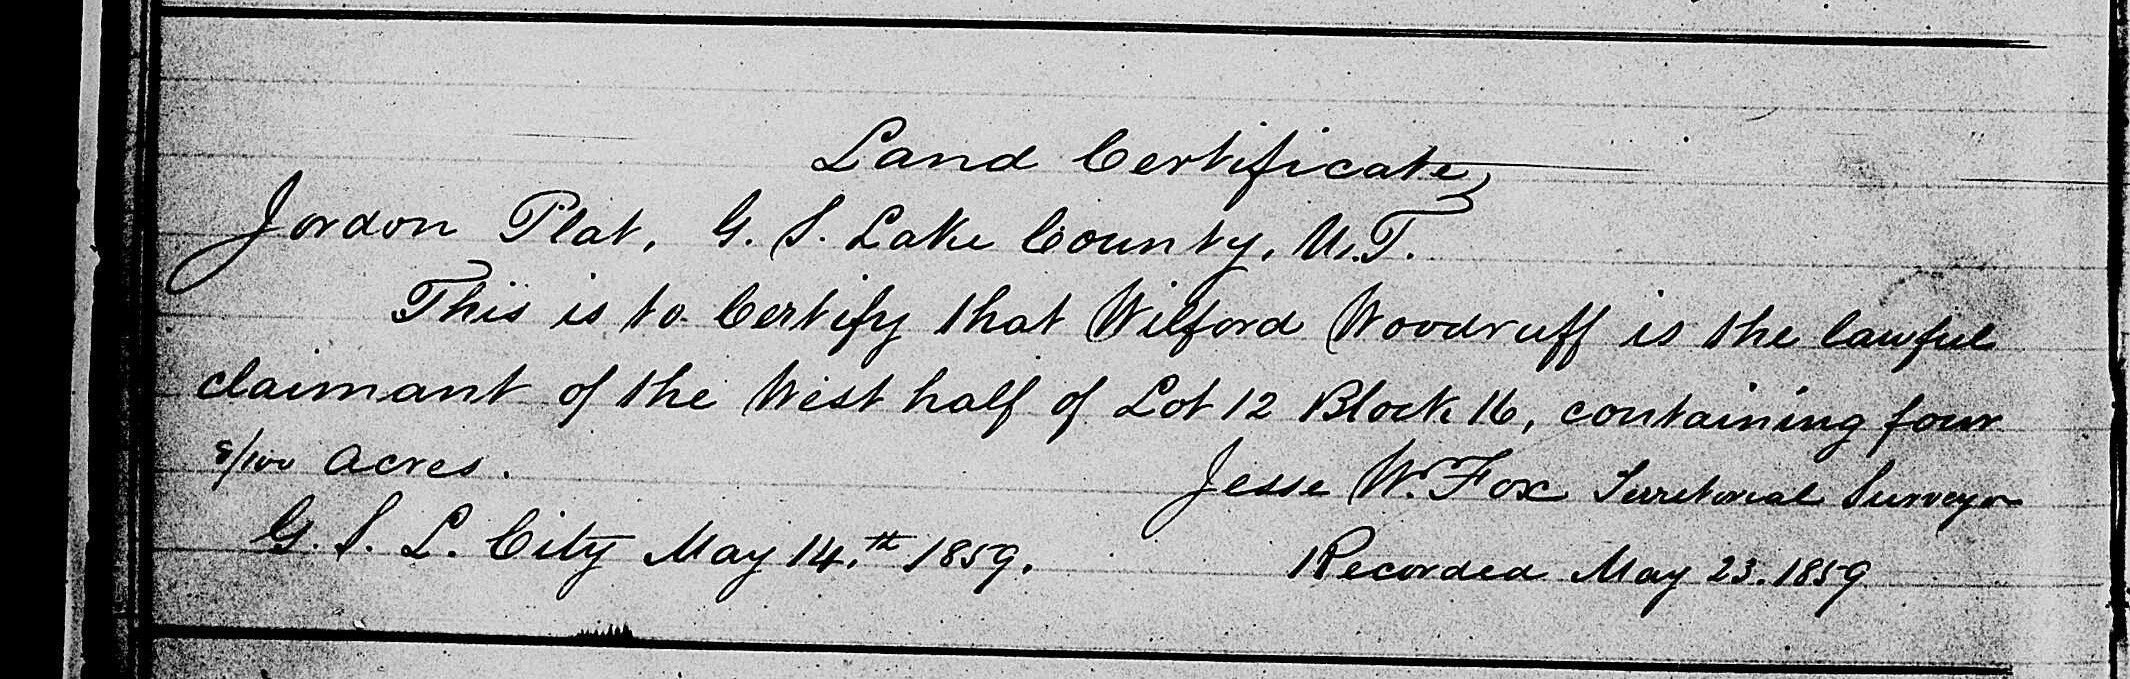 Land Certificate
Jordon Plat, G. S. Lake County, U.T.
This is to Certify that Wilford Woodruff is the lawful
claimant of the West half of Lot 12 Block 16, containing four
8/100 acres.
Jesse W. Fox Territorial Surveyor
G. S. L. City May 14.th 1859.
Recorded May 23. 1859